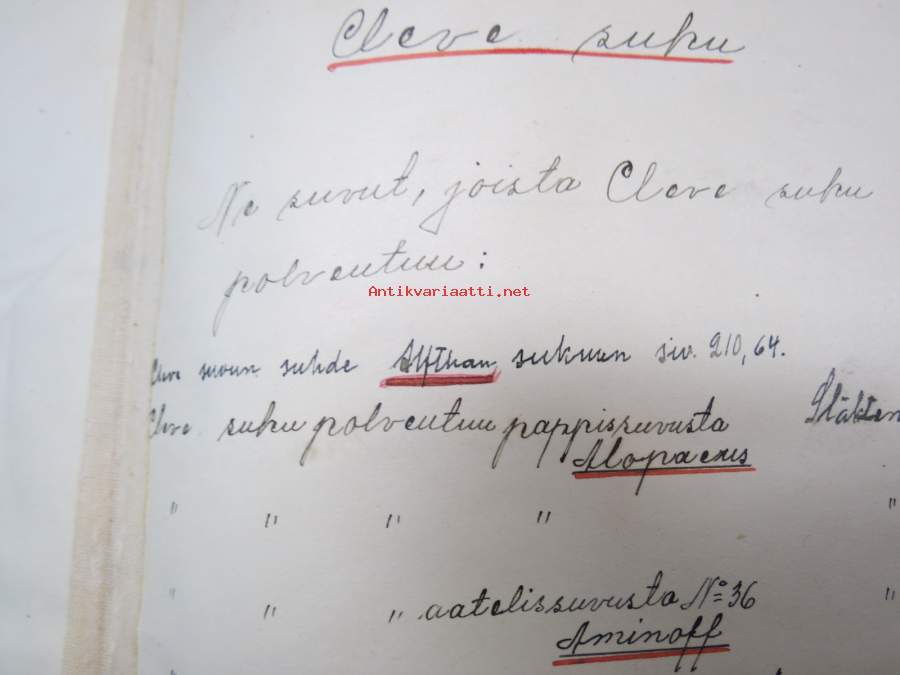 Cleve suku
Ne suvut, joista Cleve suku
polveutuu:
Antikvariaatti.net
Cleve suvun suhde Alfthan sukuun siv. 210, 64.
Cleve suku polveutuu pappissuvusta Släkten
Alopaeus
" " " " "
" " " aatelissuvusta No 36 "
Aminoff